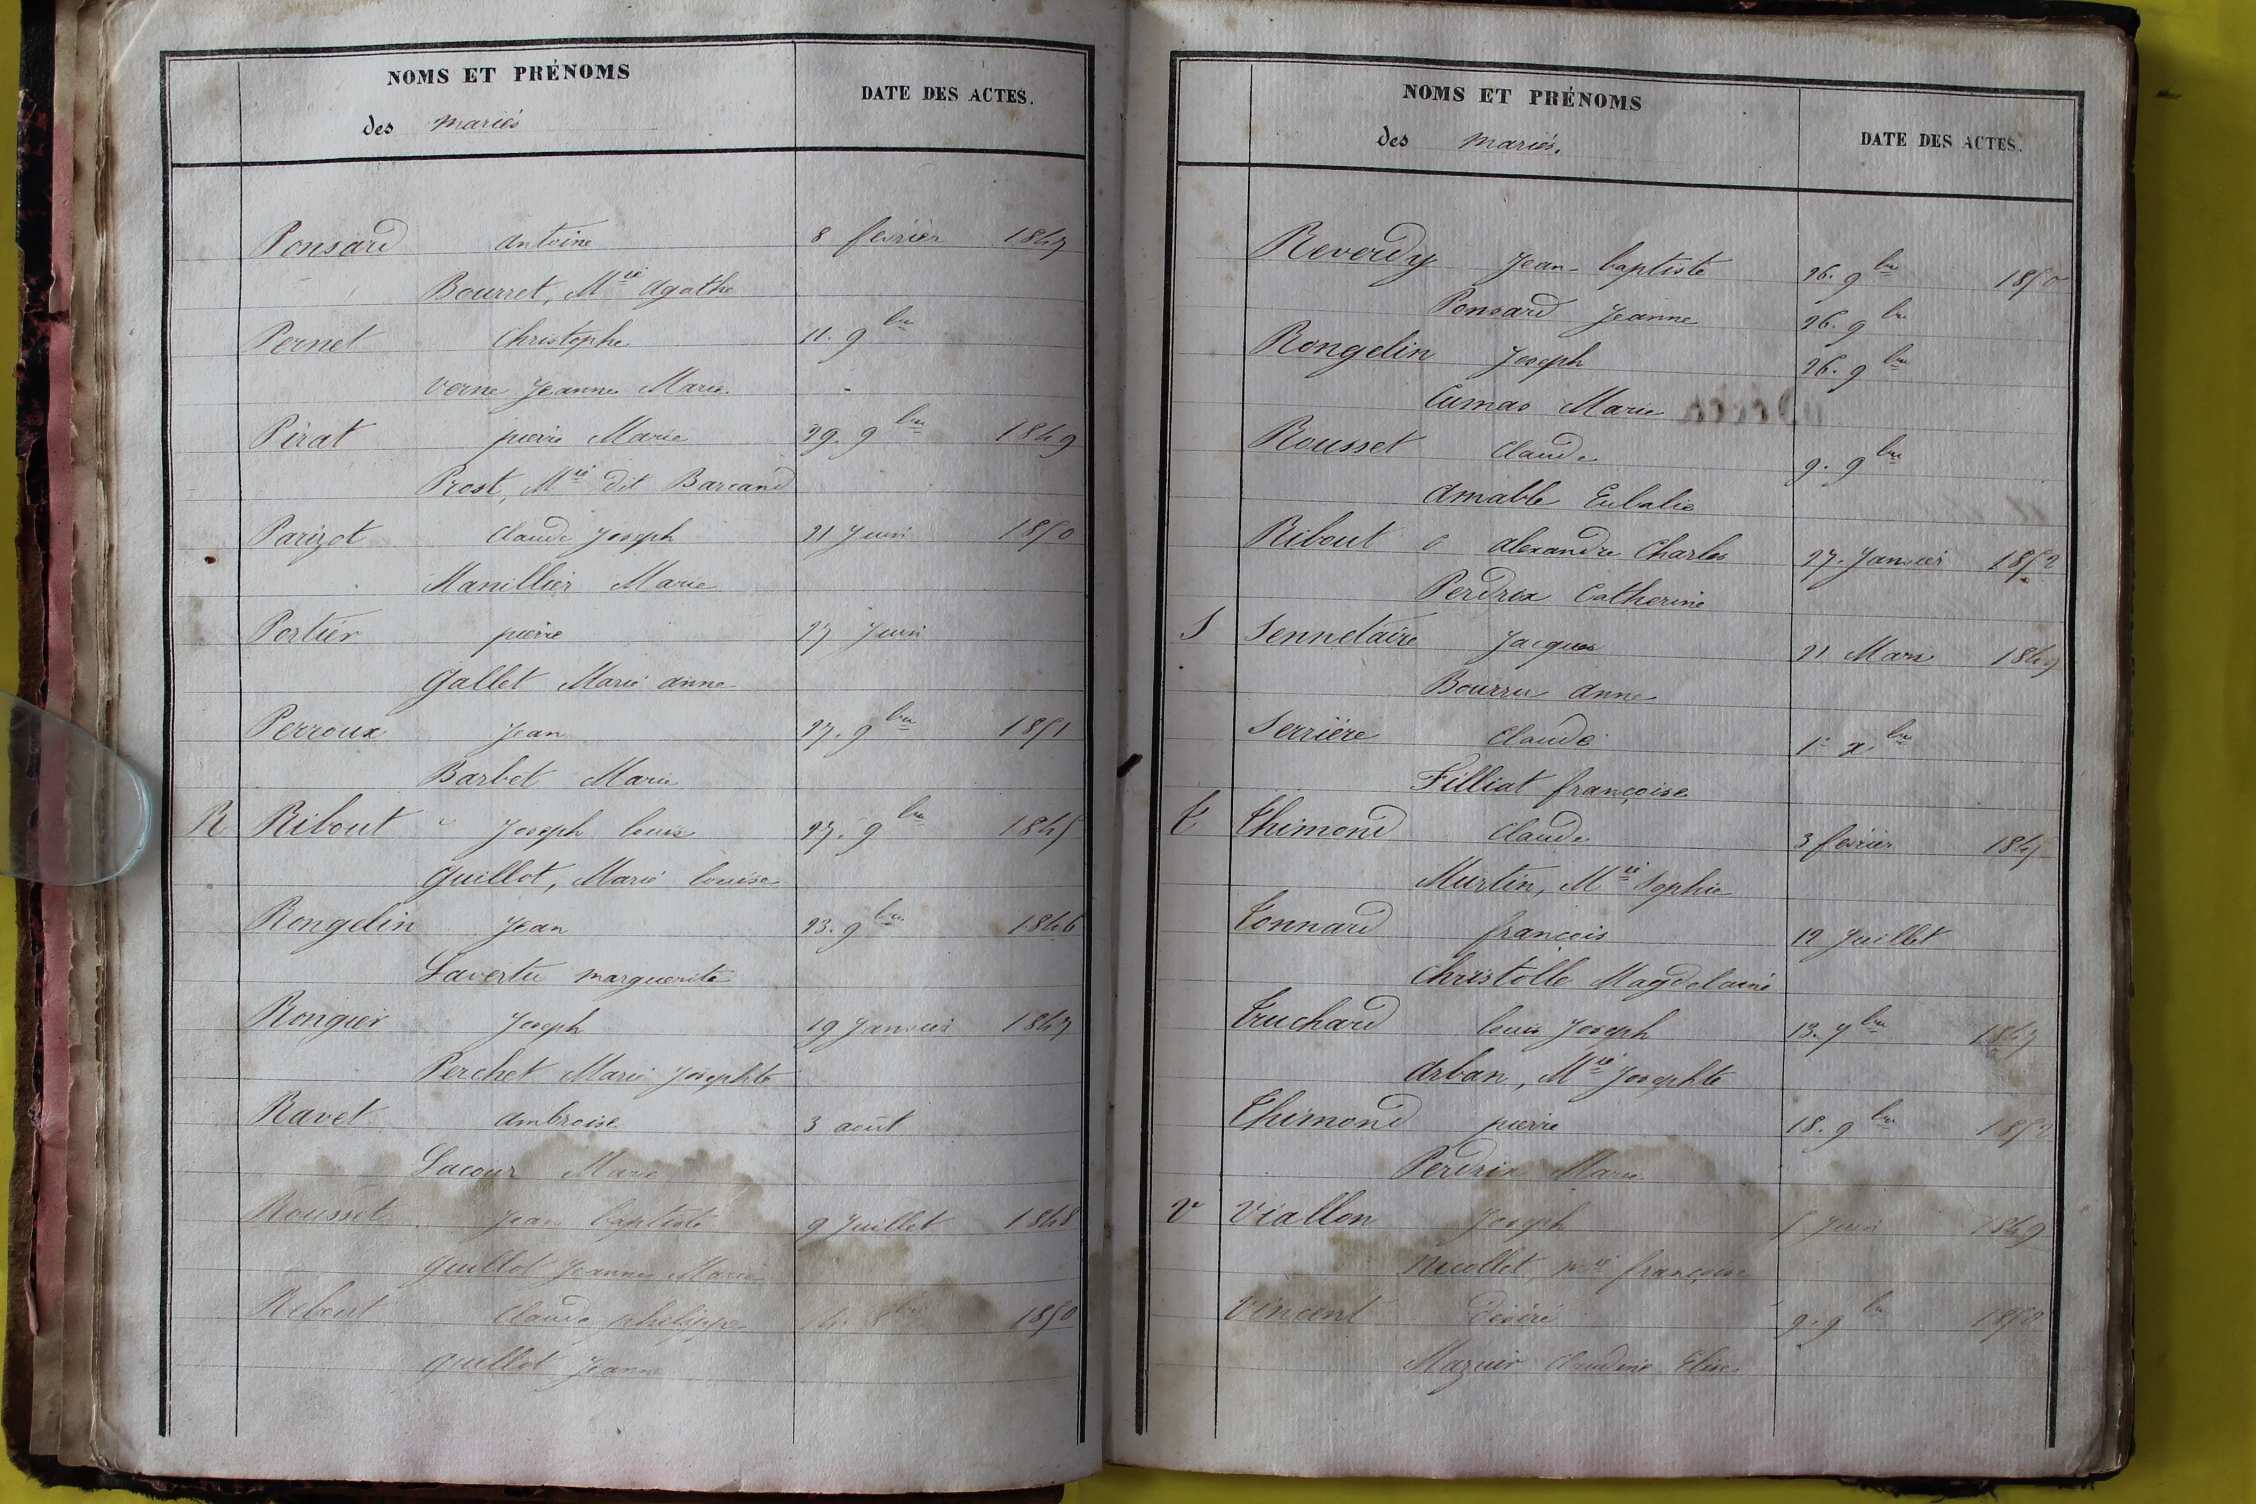 NOMS ET PRÉNOMS
des mariés
DATE DES ACTES.
Ponsard Antoine 8 février 1847
Bourret, Mie Agathe
Pernet Christophe 11. 9bre
Verne Jeanne Marie -
Pirat pierre Marie 29. 9bre 1849
Prost, Mie dit Barcand
Parizot Claude Joseph 21 Juin 1850
Manillier Marie
Portier pierre 27 Juin
Gallet Marie anne
Perroux Jean 27. 9bre 1851
Barbet Marie
R Ribout Joseph louis 27. 9bre 1845
Guillot, Marie louise
Rongelin Jean 23. 9bre 1846
Lavertu marguerite
Rongier Joseph 19 Janvier 1847
Perchet Marie Josephte
Ravet Ambroise 3 août
Lacour Marie
Rousset Jean baptiste 9 Juillet 1848
Guillot Jeanne Marie
Ribout Claude philippe 14. 8bre 1850
Guillot Jeanne
NOMS ET PRÉNOMS
des Mariés.
DATE DES ACTES.
Reverdy Jean-baptiste 26. 9bre 1850
Ponsard Jeanne 26. 9bre
Rongelin Joseph 26. 9bre
Cumas Marie
Rousset Claude 9. 9bre
Amable Eulalie
Ribout alexandre Charles 27. Janvier 1852
Perdrix Catherine
S Sennetaire Jacques 21 Mars 1847
Bourru Anne
Serrière Claude 1er Xbre
Filliat françoise
T Thimond Claude 3 février 1845
Murtin, Mie Sophie
Tonnard françois 12 Juillet
Christolle Magdelaine
Truchard louis Joseph 13. 7bre 1847
Arban, Mie Josephte
Thimond pierre 18. 9bre 1852
Perdrix Marie
V Viallon Joseph 5 Juin 1849
Nicollet, Mie françoise
Vincent Désiré 9. 9bre 1850
Mazuir Claudine Elise